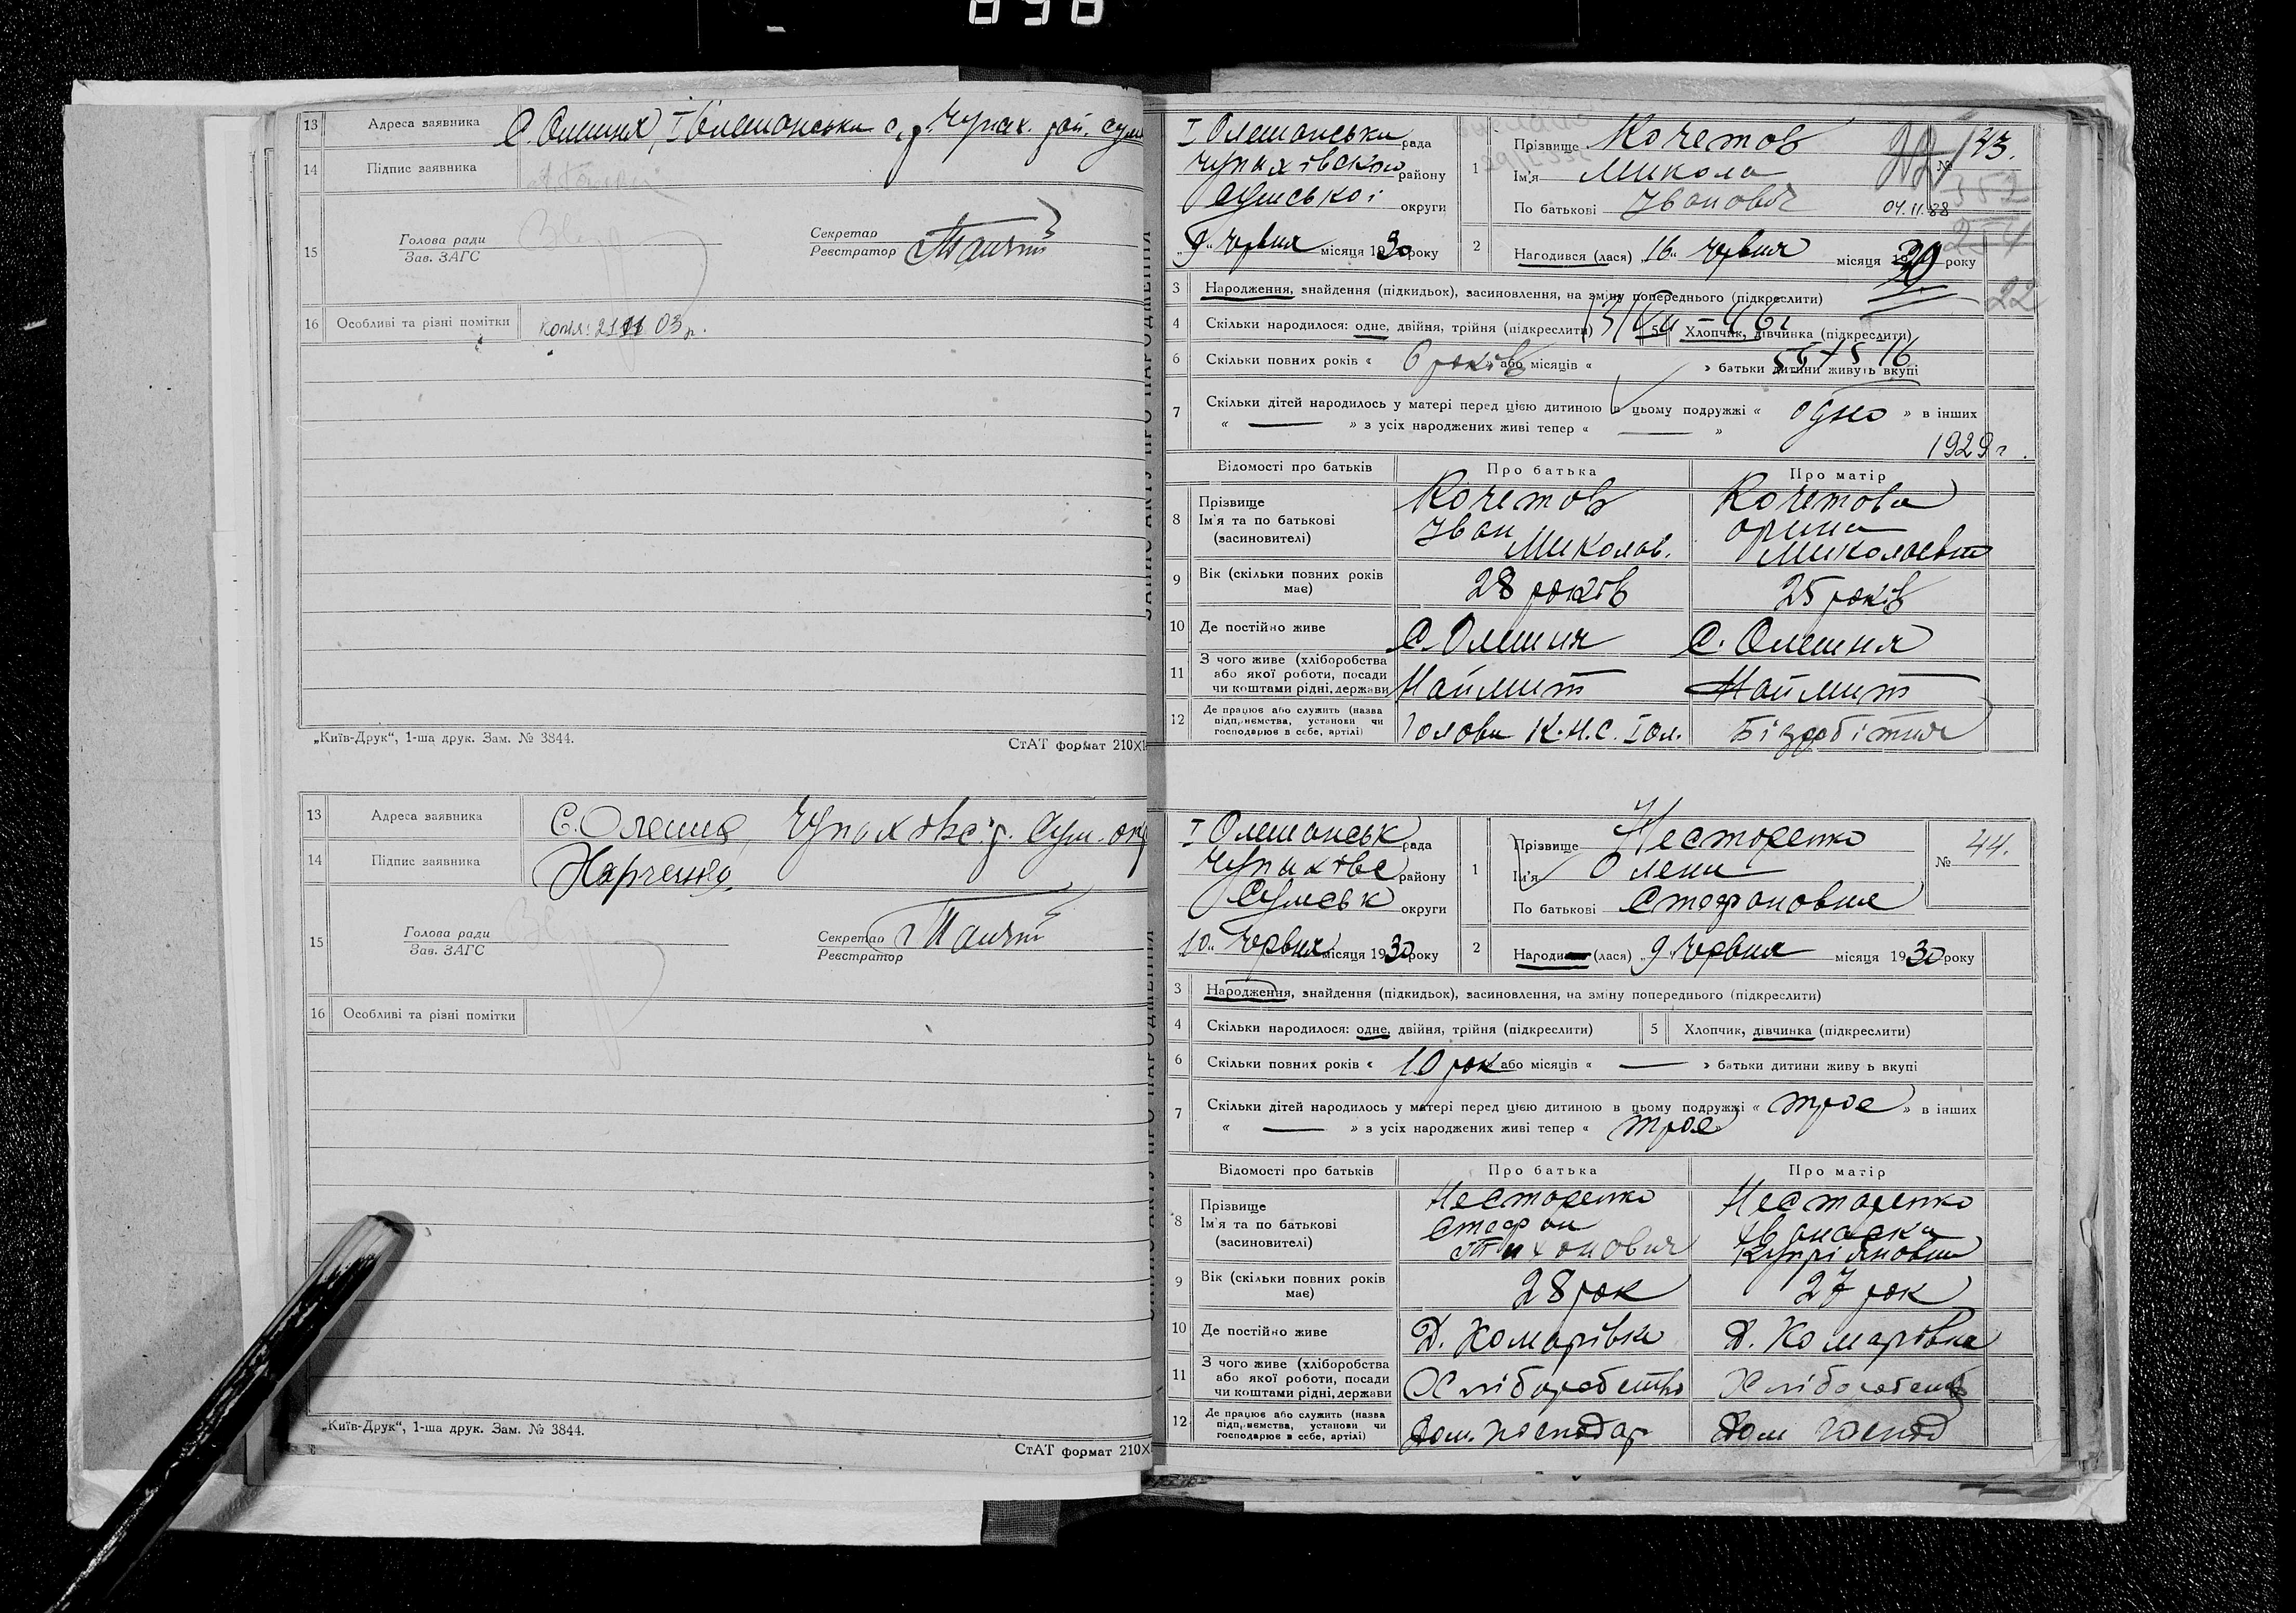 13 Адреса заявника С. Олешня, І Олешанська с.р. Чупах. рай. Сум
14 Підпис заявника
15 Голова ради
Зав. ЗАГС
Секретар
Реєстратор
16 Особливі та різні помітки копія: 21 11 03 р.
„Київ-Друк“, 1-ша друк. Зам. № 3844.
СтАТ формат 210×
13 Адреса заявника С. Олешня, Чупахівс. р. Сум. окр
14 Підпис заявника Харченко
15 Голова ради
Зав. ЗАГС
Секретар
Реєстратор
16 Особливі та різні помітки
„Київ-Друк“, 1-ша друк. Зам. № 3844.
СтАТ формат 210×
ЗАПИС АКТУ ПРО НАРОДЖЕННЯ
І Олешанська рада
Чупахівської району
Сумської округи
„9„ червня місяця 1930 року
1 Прізвище Кочетов
Ім'я Микола
По батькові Іванович
№ 43.
352
254
22
04.11.88
2 Народився (лася) „16„ червня місяця 1929 року
3 Народження, знайдення (підкидьок), засиновлення, на зміну попереднього (підкреслити)
4 Скільки народилося: одне, двійня, трійня (підкреслити) 5 Хлопчик, дівчинка (підкреслити)
6 Скільки повних років « 6 років » або місяців « » батьки дитини живуть вкупі
7 Скільки дітей народилось у матері перед цією дитиною в цьому подружжі « одно » в інших
« — » з усіх народжених живі тепер « — »
1929 г.
Відомості про батьків Про батька Про матір
8 Прізвище Кочетов Кочетова
Ім'я та по батькові Іван Орина
(засиновителі) Миколов. Миколаевна
9 Вік (скільки повних років має) 28 років 25 років
10 Де постійно живе С. Олешня С. Олешня
11 З чого живе (хліборобства
або якої роботи, посади
чи коштами рідні, держави Наймит Наймит
12 Де працює або служить (назва
підприємства, установи чи
господарює в себе, артілі) Голова К.Н.С. І Ол. Безробітня
І Олешанськ рада
Чупахівс району
Сумськ округи
„10„ червня місяця 1930 року
1 Прізвище Несторенко
Ім'я Олена
По батькові Стефановна
№ 44.
2 Народи (лася) „9„ червня місяця 1930 року
3 Народження, знайдення (підкидьок), засиновлення, на зміну попереднього (підкреслити)
4 Скільки народилося: одне, двійня, трійня (підкреслити) 5 Хлопчик, дівчинка (підкреслити)
6 Скільки повних років « 10 рок » або місяців « — » батьки дитини живу ь вкупі
7 Скільки дітей народилось у матері перед цією дитиною в цьому подружжі « троє » в інших
« — » з усіх народжених живі тепер « троє »
Відомості про батьків Про батька Про матір
8 Прізвище Несторенко Несторенко
Ім'я та по батькові Стефан
(засиновителі) Тихонович Купріяновна
9 Вік (скільки повних років має) 28 рок 27 рок
10 Де постійно живе Д. Комарівка Д. Комарівка
11 З чого живе (хліборобства
або якої роботи, посади
чи коштами рідні, держави Хліборобство Хліборобств
12 Де працює або служить (назва
підприємства, установи чи
господарює в себе, артілі) Дом. господар Дом господ